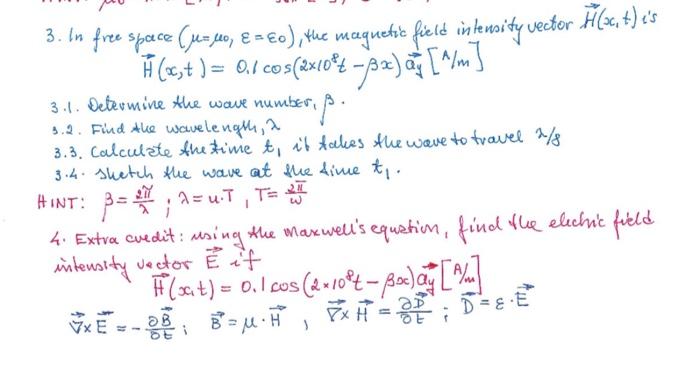 3. In free space (μ=μ₀, ε=ε₀), the magnetic field intensity vector H⃗(x,t) is
H⃗(x,t) = 0.1 cos(2×10⁸t - βx) a⃗y [A/m]
3.1. Determine the wave number, β.
3.2. Find the wavelength, λ
3.3. Calculate the time t₁ it takes the wave to travel λ/8
3.4. Sketch the wave at the time t₁.
HINT: β = 2π/λ ; λ = u·T , T = 2π/ω
4. Extra credit: using the Maxwell's equation, find the electric field
intensity vector E⃗ if
H⃗(x,t) = 0.1 cos(2×10⁸t - βx) a⃗y [A/m]
∇⃗×E⃗ = -∂B⃗/∂t ; B⃗ = μ·H⃗ , ∇⃗×H⃗ = ∂D⃗/∂t ; D⃗ = ε·E⃗